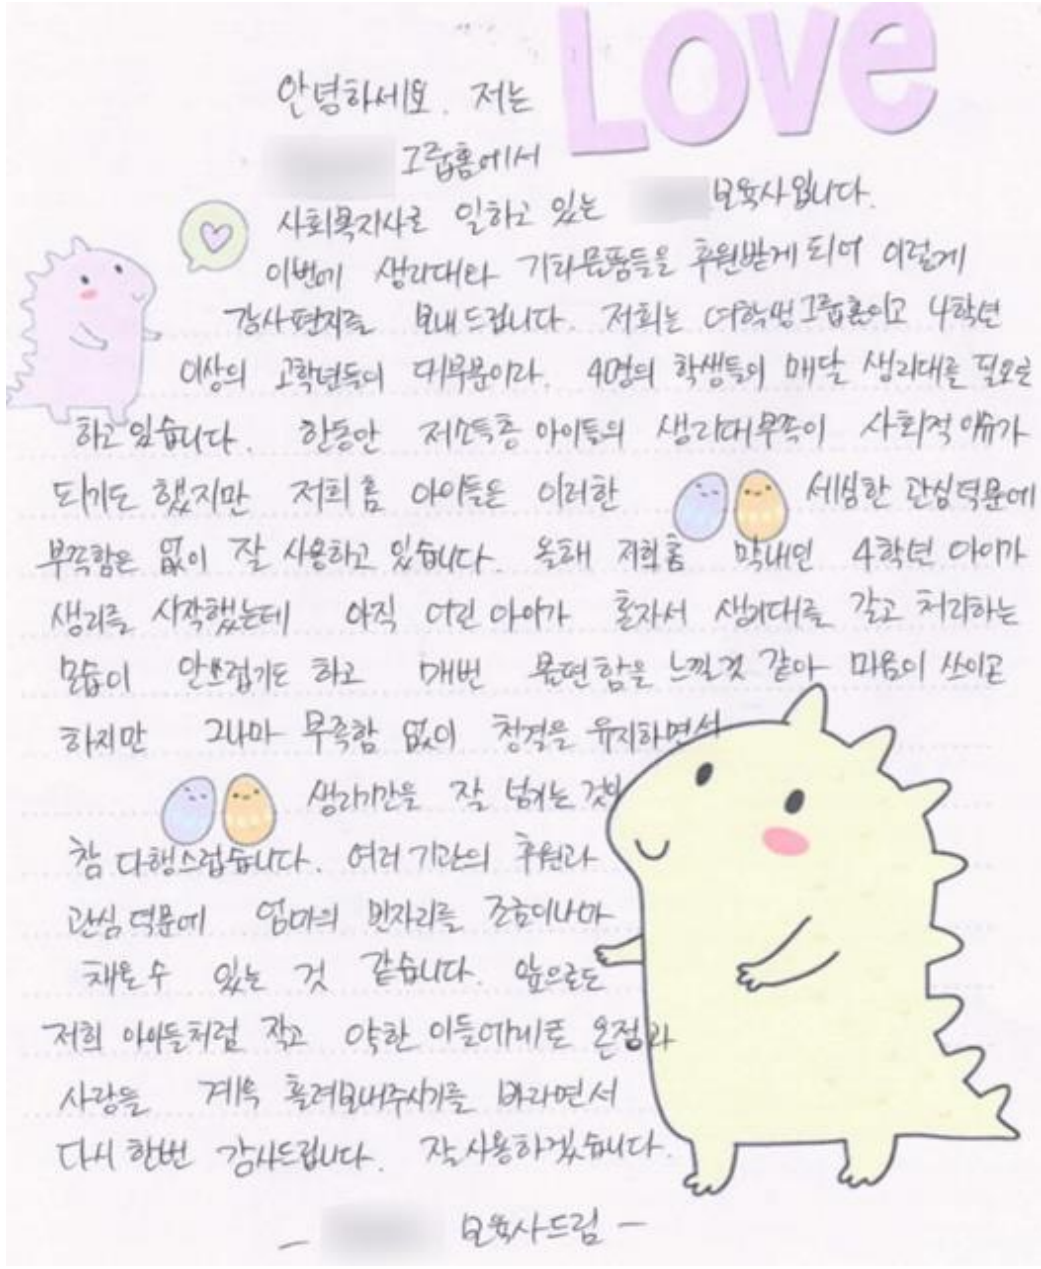 Love
안녕하세요. 저는
그룹홈에서
사회복지사로 일하고 있는 보육사입니다.
이번에 생리대와 기타물품들을 후원받게 되어 이렇게
감사편지를 보내드립니다. 저희는 여학생그룹홈이고 4학년
이상의 고학년들이 대부분이라. 4명의 학생들이 매달 생리대를 필요로
하고 있습니다. 한동안 저소득층 아이들의 생리대부족이 사회적 이슈가
되기도 했지만 저희홈 아이들은 이러한 세심한 관심덕분에
부족함은 없이 잘 사용하고 있습니다. 올해 저희홈 막내인 4학년 아이가
생리를 시작했는데 아직 어린 아이가 혼자서 생리대를 갈고 처리하는
모습이 안쓰럽기도 하고 매번 불편함을 느낄것 같아 마음이 쓰이곤
하지만 그나마 부족함 없이 청결을 유지하면서
생리기간을 잘 넘기는 것이
참 다행스럽습니다. 여러 기관의 후원과
관심 덕분에 엄마의 빈자리를 조금이나마
채울 수 있는 것 같습니다. 앞으로도
저희 아이들처럼 작고 약한 이들에게도 온정과
사랑을 계속 흘려보내주시기를 바라면서
다시 한번 감사드립니다. 잘 사용하겠습니다.
- 보육사드림 -